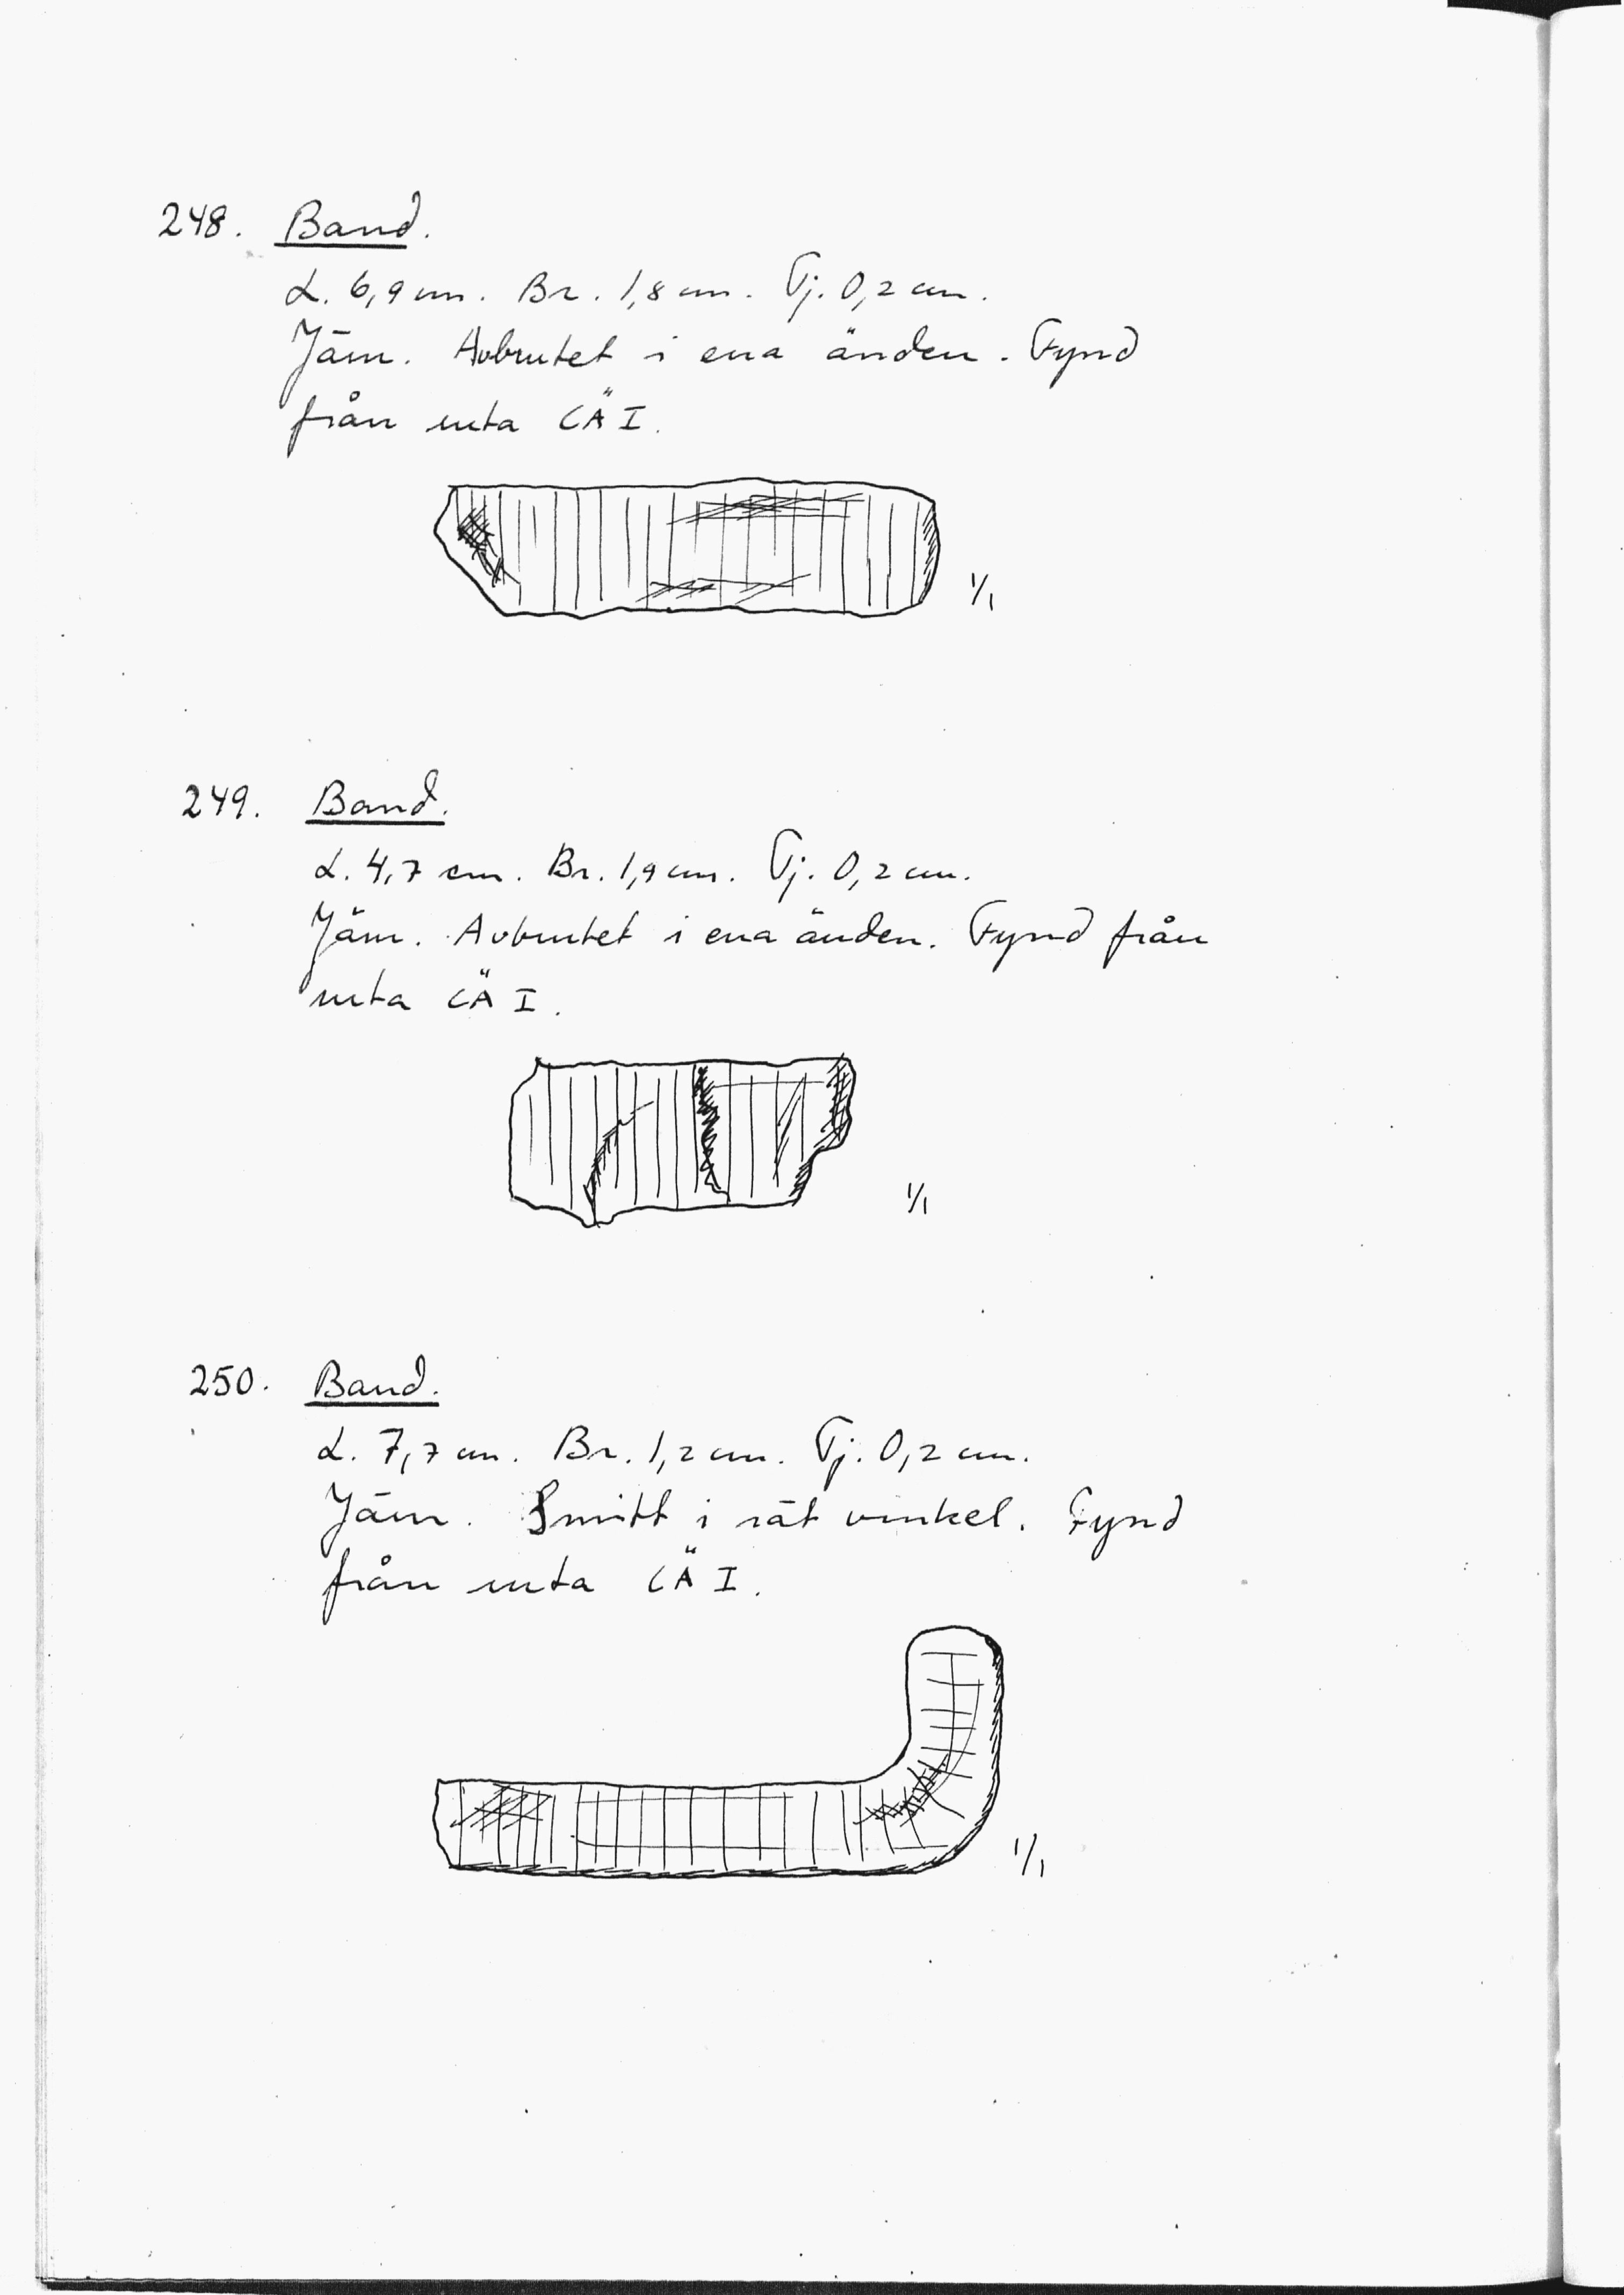 248. Band.
L. 6,9 cm. Br. 1,8 cm. Tj. 0,2 cm.
Järn. Avbrutet i ena änden. Fynd
från ruta CÄ I.
1/1
249. Band.
L. 4,7 cm. Br. 1,9 cm. Tj. 0,2 cm.
Järn. Avbrutet i ena änden. Fynd från
ruta CÄ I.
1/1
250. Band.
L. 7,7 cm. Br. 1,2 cm. Tj. 0,2 cm.
Järn. Smitt i rät vinkel. Fynd
från ruta CÄ I.
1/1